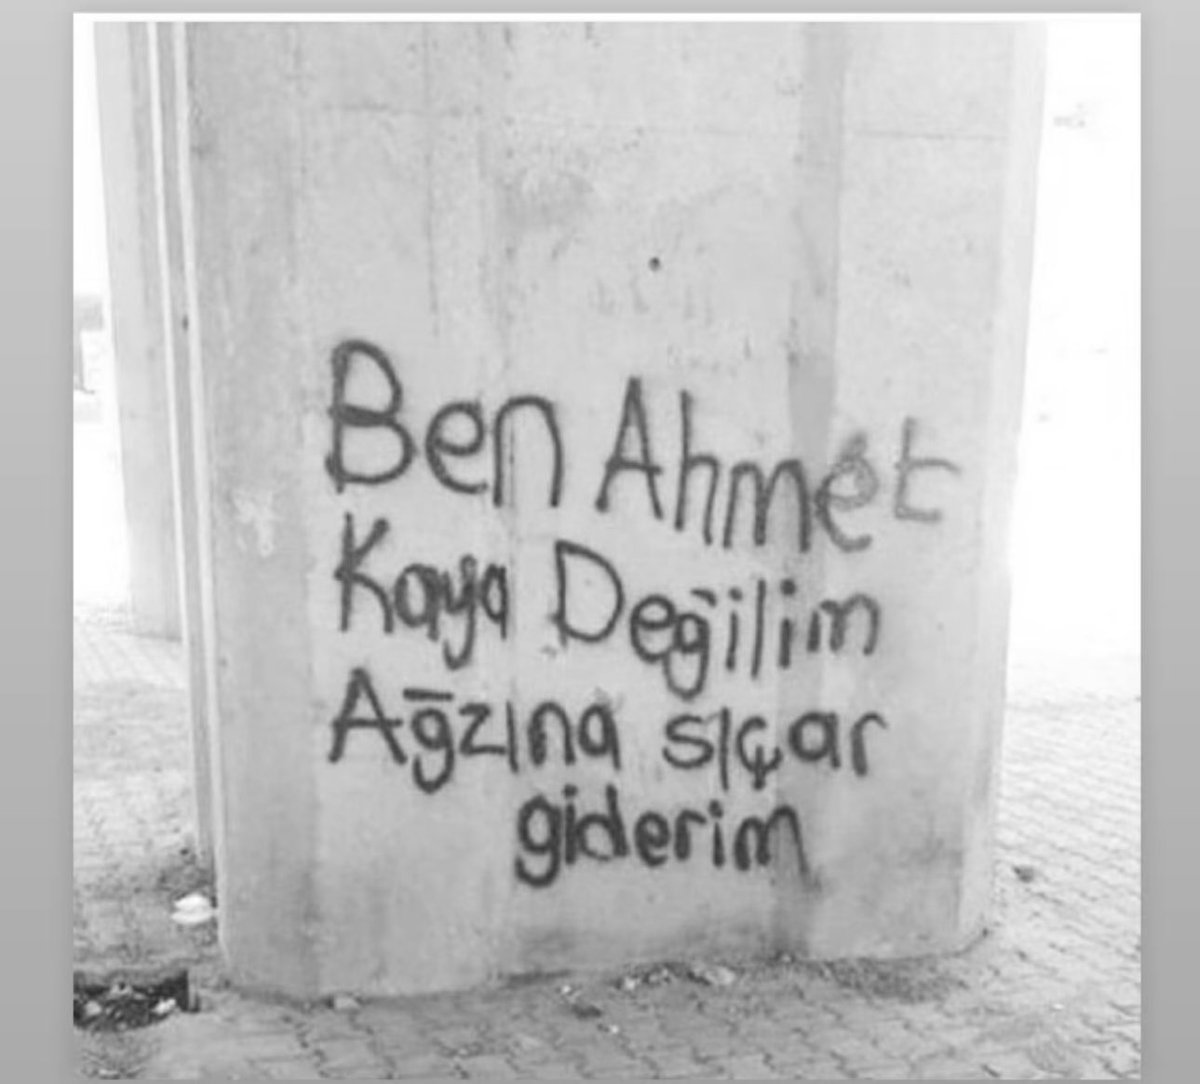 Ben Ahmet
Kaya Değilim
Ağzına sıçar
giderim